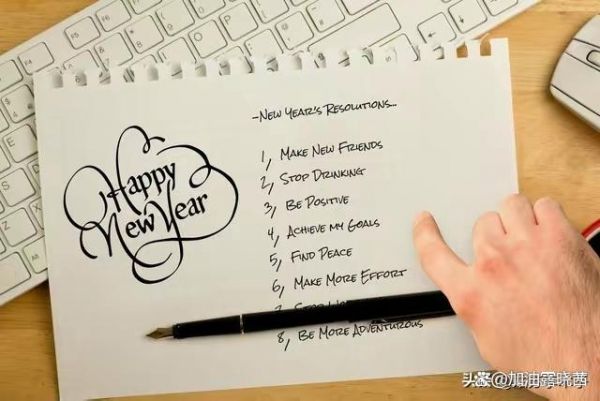 Happy
New Year
-New Year's Resolutions...
1, Make New Friends
2, Stop Drinking
3, Be Positive
4, Achieve my Goals
5, Find Peace
6, Make More Effort
Stop
8, Be More Adventurous
头条@加油露晓茜